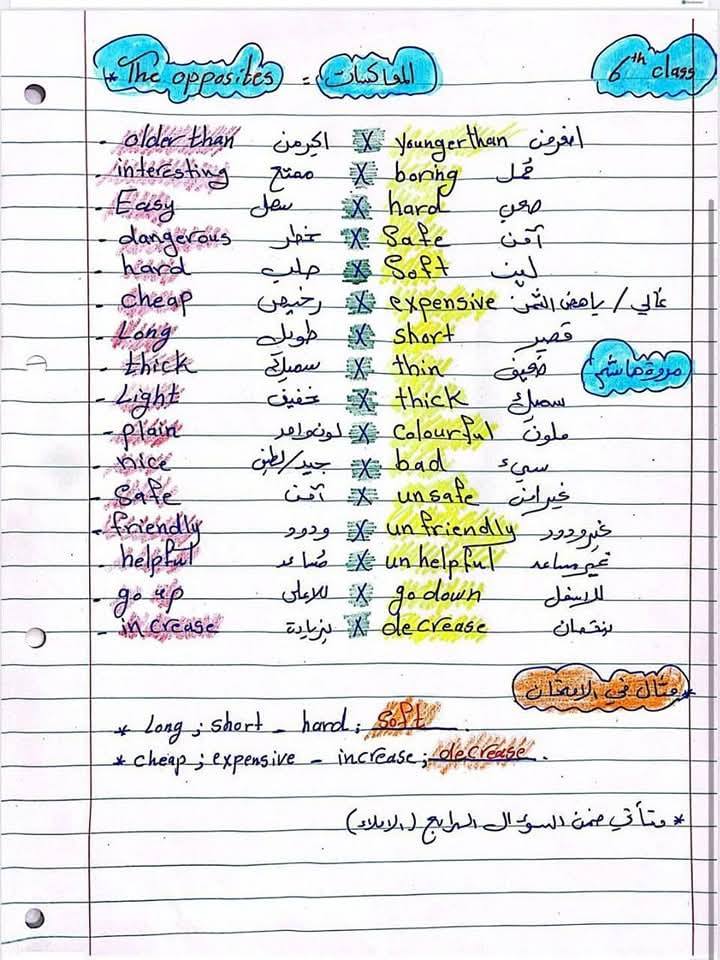 * The opposites = المعاكسات 6th class
- older than اكبر من X younger than اصغر من
- interesting ممتع X boring ممل
- Easy سهل X hard صعب
- dangerous خطر X Safe آمن
- hard صلب X Soft لين
- cheap رخيص X expensive غالي / باهض الثمن
- Long طويل X short قصير
- thick سميك X thin ضعيف
مروة هاشم
- Light خفيف X thick سميك
- plain لون واحد X Colourful ملون
- nice جيد/لطيف X bad سيء
- Safe آمن X unsafe غير امن
- friendly ودود X unfriendly غير ودود
- helpful مساعد X unhelpful غير مساعد
- go up للاعلى X go down للاسفل
- increase بزيادة X decrease بنقصان
* مثال في الامتحان
* Long ; short - hard ; Soft.
* cheap ; expensive - increase ; decrease.
* وتأتي ضمن السؤال الرابع (الاملاء)